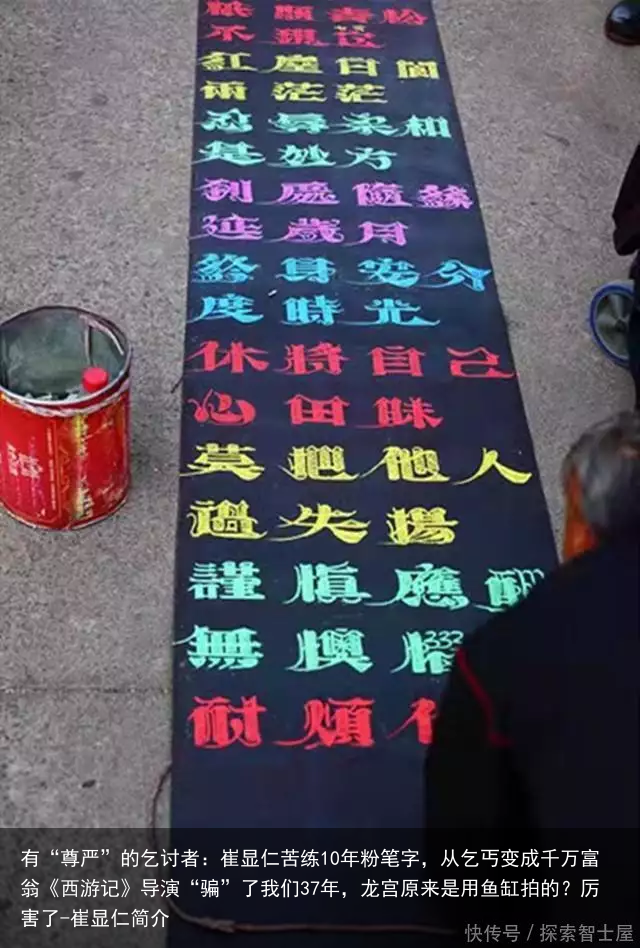 不
紅塵
兩茫茫
忍辱柔
是妙方
到處隨緣
延歲月
終身安分
度時光
休將自己
心田昧
莫把他人
過失揚
謹慎應酬
無懊
耐煩
有“尊严”的乞讨者：崔显仁苦练10年粉笔字，从乞丐变成千万富
翁《西游记》导演“骗”了我们37年，龙宫原来是用鱼缸拍的？厉
害了-崔显仁简介
快传号／探索智士屋